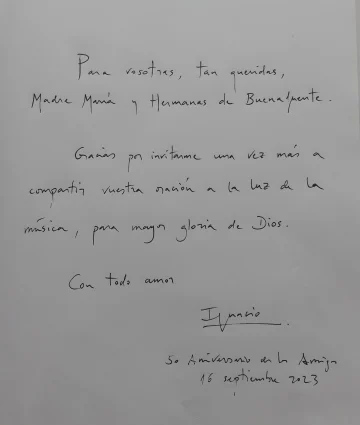 Para vosotras, tan queridas,
Madre María y Hermanas de Buenafuente.
Gracias por invitarme una vez más a
compartir vuestra oración a la luz de la
música, para mayor gloria de Dios.
Con todo amor
Ignacio
50 Aniversario de la Amiga
16 septiembre 2023